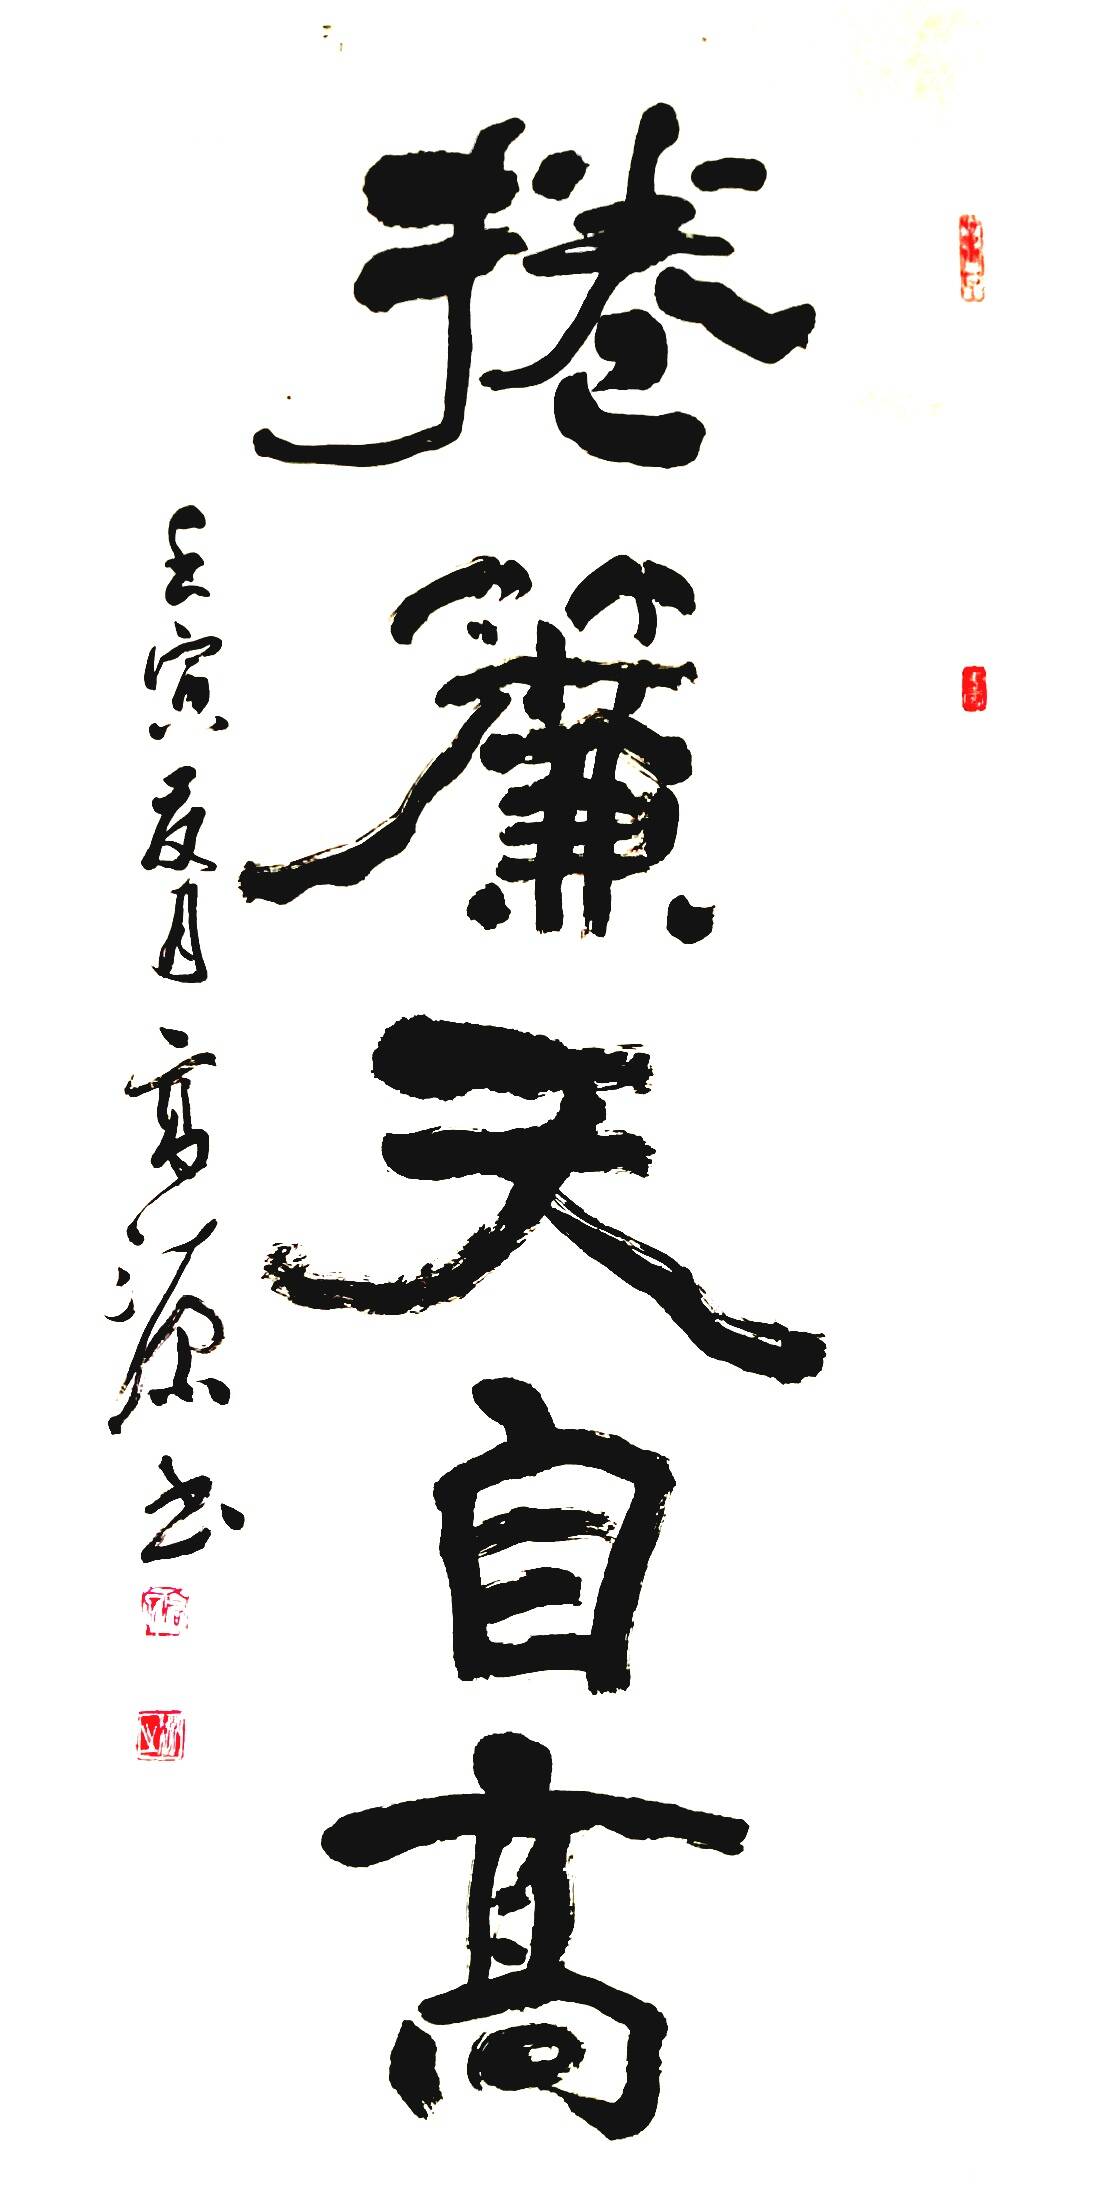 捲簾天自高
壬寅夏月高源书